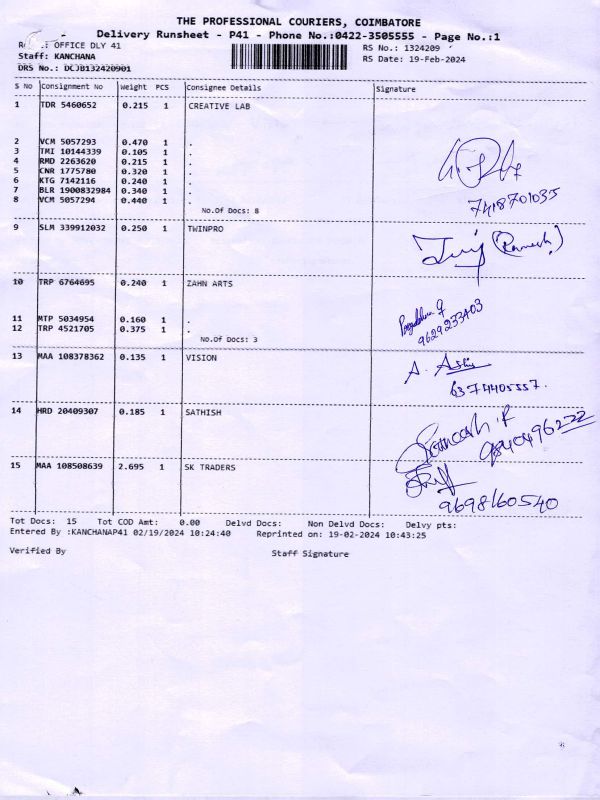 THE PROFESSIONAL COURIERS, COIMBATORE
Delivery Runsheet - P41 - Phone No.:0422-3505555 - Page No.:1
.: OFFICE DLY 41 RS No.: 1324209
Staff: KANCHANA RS Date: 19-Feb-2024
DRS No.: DCJB132420901
S No Consignment No Weight PCS Consignee Details Signature
1 TDR 5460652 0.215 1 CREATIVE LAB
2 VCM 5057293 0.470 1 .
3 TMI 10144339 0.105 1 .
4 RMD 2263620 0.215 1 .
5 CNR 1775780 0.320 1 .
6 KTG 7142116 0.240 1 .
7 BLR 1900832984 0.340 1 .
8 VCM 5057294 0.440 1 .
7418701035
No.Of Docs: 8
9 SLM 339912032 0.250 1 TWINPRO
(Ramesh)
10 TRP 6764695 0.240 1 ZAHN ARTS
11 MTP 5034954 0.160 1 .
12 TRP 4521705 0.375 1 .
9629233403
No.Of Docs: 3
13 MAA 108378362 0.135 1 VISION
6374405557.
14 HRD 20409307 0.185 1 SATHISH
9840496222
15 MAA 108508639 2.695 1 SK TRADERS
9698160540
Tot Docs: 15 Tot COD Amt: 0.00 Delvd Docs: Non Delvd Docs: Delvy pts:
Entered By :KANCHANAP41 02/19/2024 10:24:40 Reprinted on: 19-02-2024 10:43:25
Verified By Staff Signature